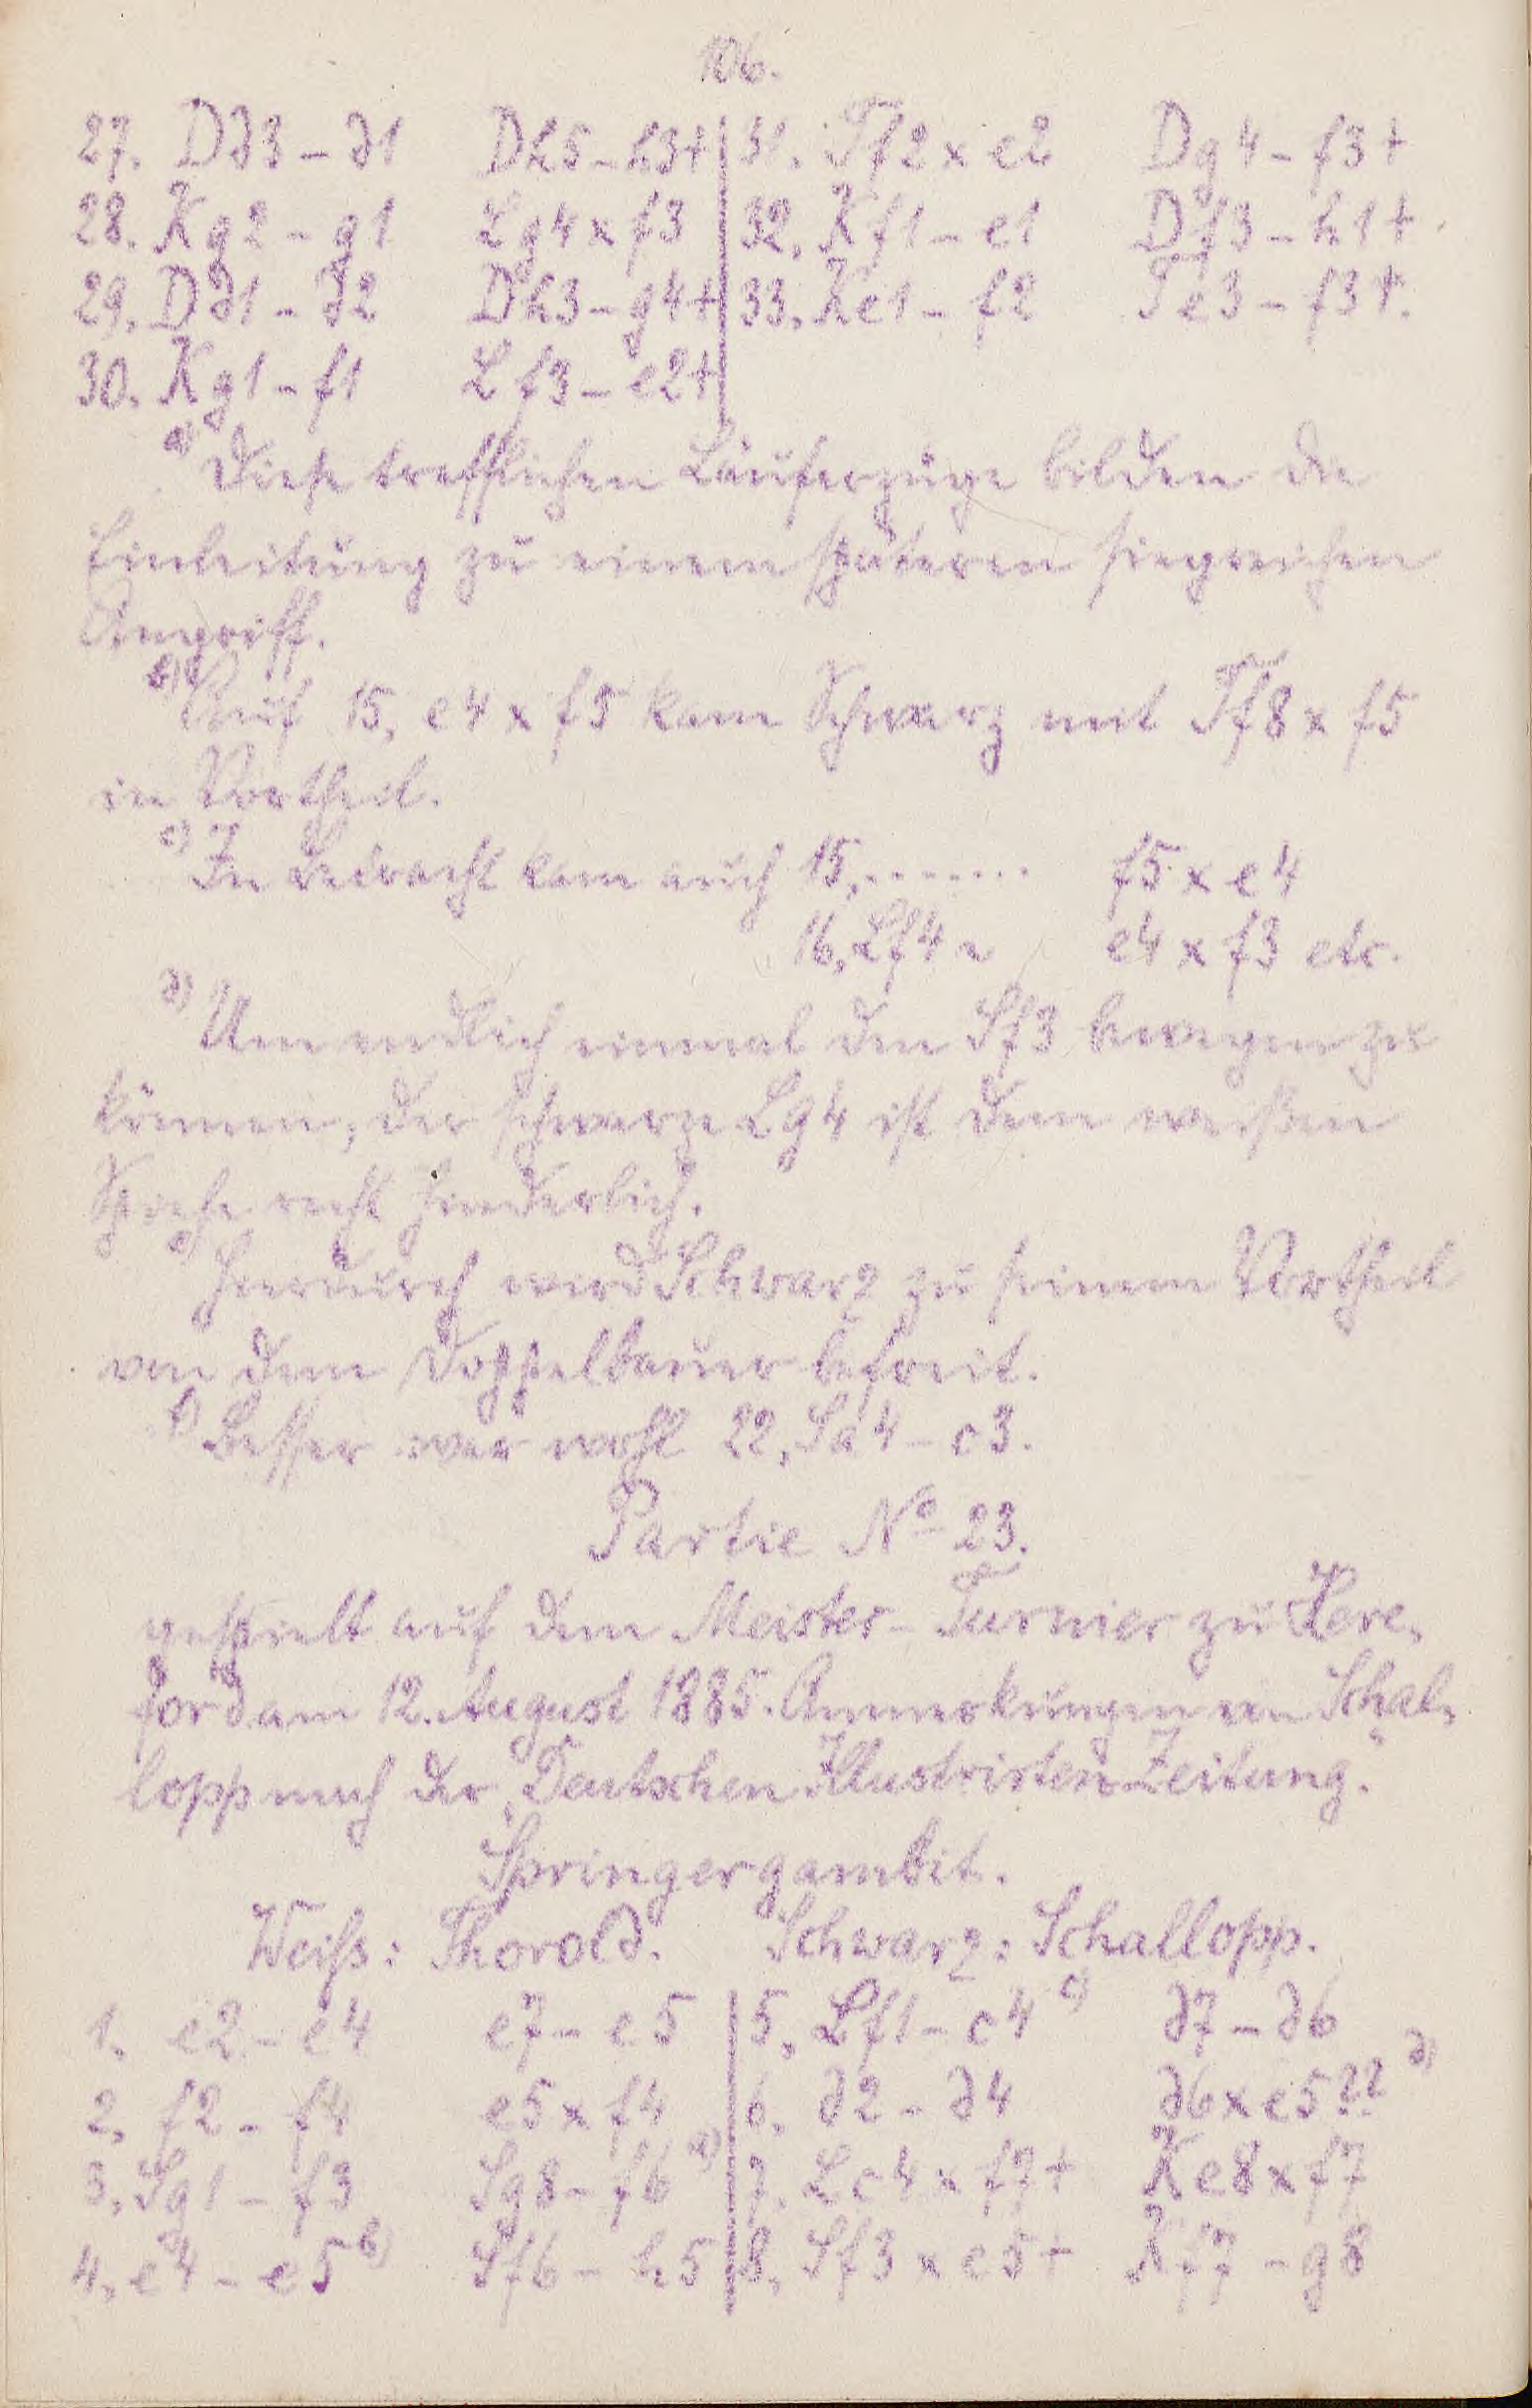 106.
27. Dd3 – d1 Dh5 – h3+ 31. Tf2 x e2 Dg4 – f3+
28. Kg2 – g1 Lg4 x f3 32. Kf1 – e1 Df3 – h1+
29. Dd1 – d2 Dh3 – g4+ 33. Ke1 – f2 Te3 – f3+.
30. Kg1 – f1 Lf3 – e2+
a) Diese trefflichen Läuferzüge bilden die
Einleitung zu einem späteren siegreichen
Angriff.
b) Auf 15. e4 x f5 kam Schwarz mit Tf8 x f5
in Vortheil.
c) In Betracht kam auch 15. ........ f5 x e4
16. Lf4 ~ e4 x f3 etc.
d) Um endlich einmal den Sf3 bewegen zu
können; der schwarze Lg4 ist dem weißen
Spiele recht hinderlich.
e) Hierdurch wird Schwarz zu seinem Vortheil
von dem Doppelbauer befreit.
f) Besser war wohl 22. Sa4 – c3.
Partie No 23.
gespielt auf dem Meister-Turnier zu Here-
ford am 12. August 1885. Anmerkungen von Schal-
lopp nach der „Deutschen Illustrirten Zeitung."
Springergambit.
Weiss: Thorold. Schwarz: Schallopp.
1. e2 – e4 e7 – e5 5. Lf1 – c4 c) d7 – d6
2. f2 – f4 e5 x f4 6. d2 – d4 d6 x e5?? d)
3. Sg1 – f3 Sg8 – f6 a) 7. Lc4 x f7+ Ke8 x f7
4. e4 – e5 b) Sf6 – h5 8. Sf3 x e5+ Kf7 – g8